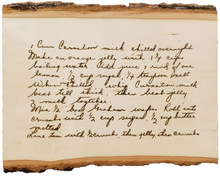 1 Can Carnation milk chilled overnight
Make an orange jelly with 1 3/4 cups
boiling water Add juice & rind of one
lemon, 1/2 cup sugar, 1/4 teaspoon salt
When chilled whip Carnation milk
beat till thick, then beat jelly
& milk together.
Mix & Graham wafers Roll into
crumbs with 1/2 cup sugar 1/2 cup butter
melted
Line pan with crumbs, then jelly then crumbs